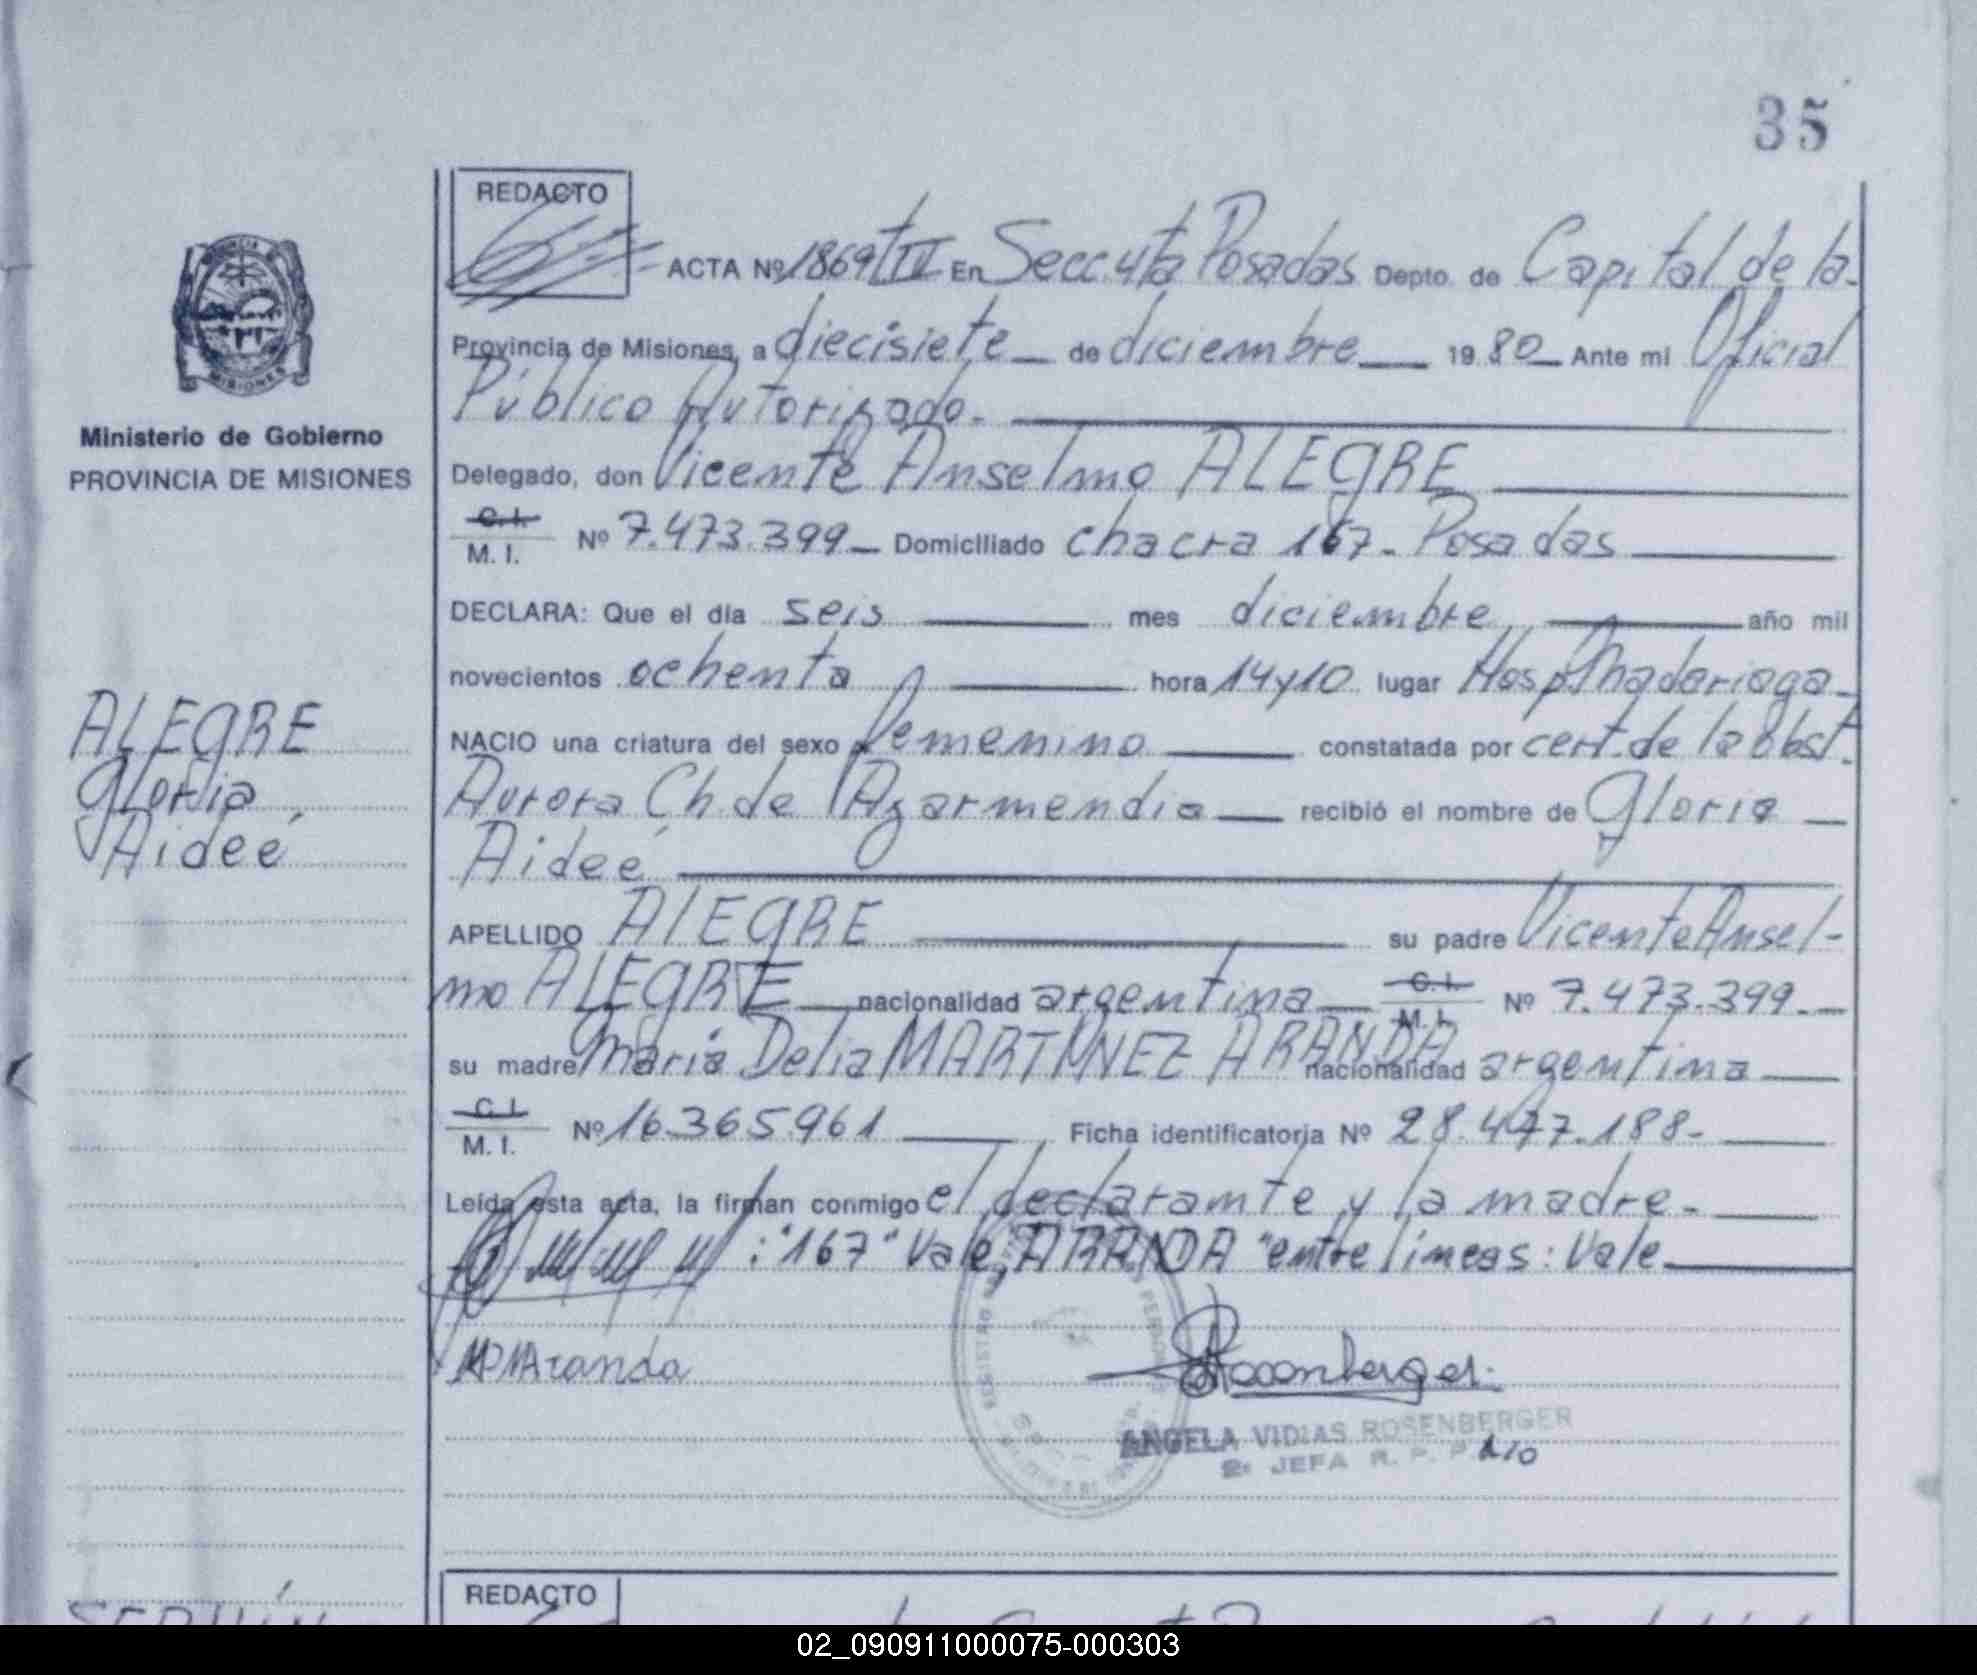 35
REDACTO
ACTA Nº 1869 TIV En Secc. 4ta Posadas Depto. de Capital de la
Provincia de Misiones, a diecisiete de diciembre 1980 Ante mi Oficial
Público Autorizado.
Ministerio de Gobierno
PROVINCIA DE MISIONES
Delegado, don Vicente Anselmo ALEGRE
C.I. M. I. Nº 7.473.399 Domiciliado chacra 167 - Posadas
DECLARA: Que el día seis mes diciembre año mil
novecientos ochenta hora 14y10 lugar Hosp. Madariaga
ALEGRE
Gloria
Aideé
NACIO una criatura del sexo femenino constatada por cert. de la Obst.
Aurora Ch. de Azarmendia recibió el nombre de Gloria
Aideé
APELLIDO ALEGRE su padre Vicente Ansel-
mo ALEGRE nacionalidad argentina C.I. M.I. Nº 7.473.399.
su madre María Delia MARTINEZ ARANDA nacionalidad argentina
C.I. M. I. Nº 16.365.961 Ficha identificatoria Nº 28.477.188.
Leída esta acta, la firman conmigo el declarante y la madre.
: "167" Vale, ARANDA "entre lineas: Vale
Aranda
Rosenberger
ANGELA VIDIAS ROSENBERGER
2ª JEFA R. P. P.
REDACTO
02_090911000075-000303